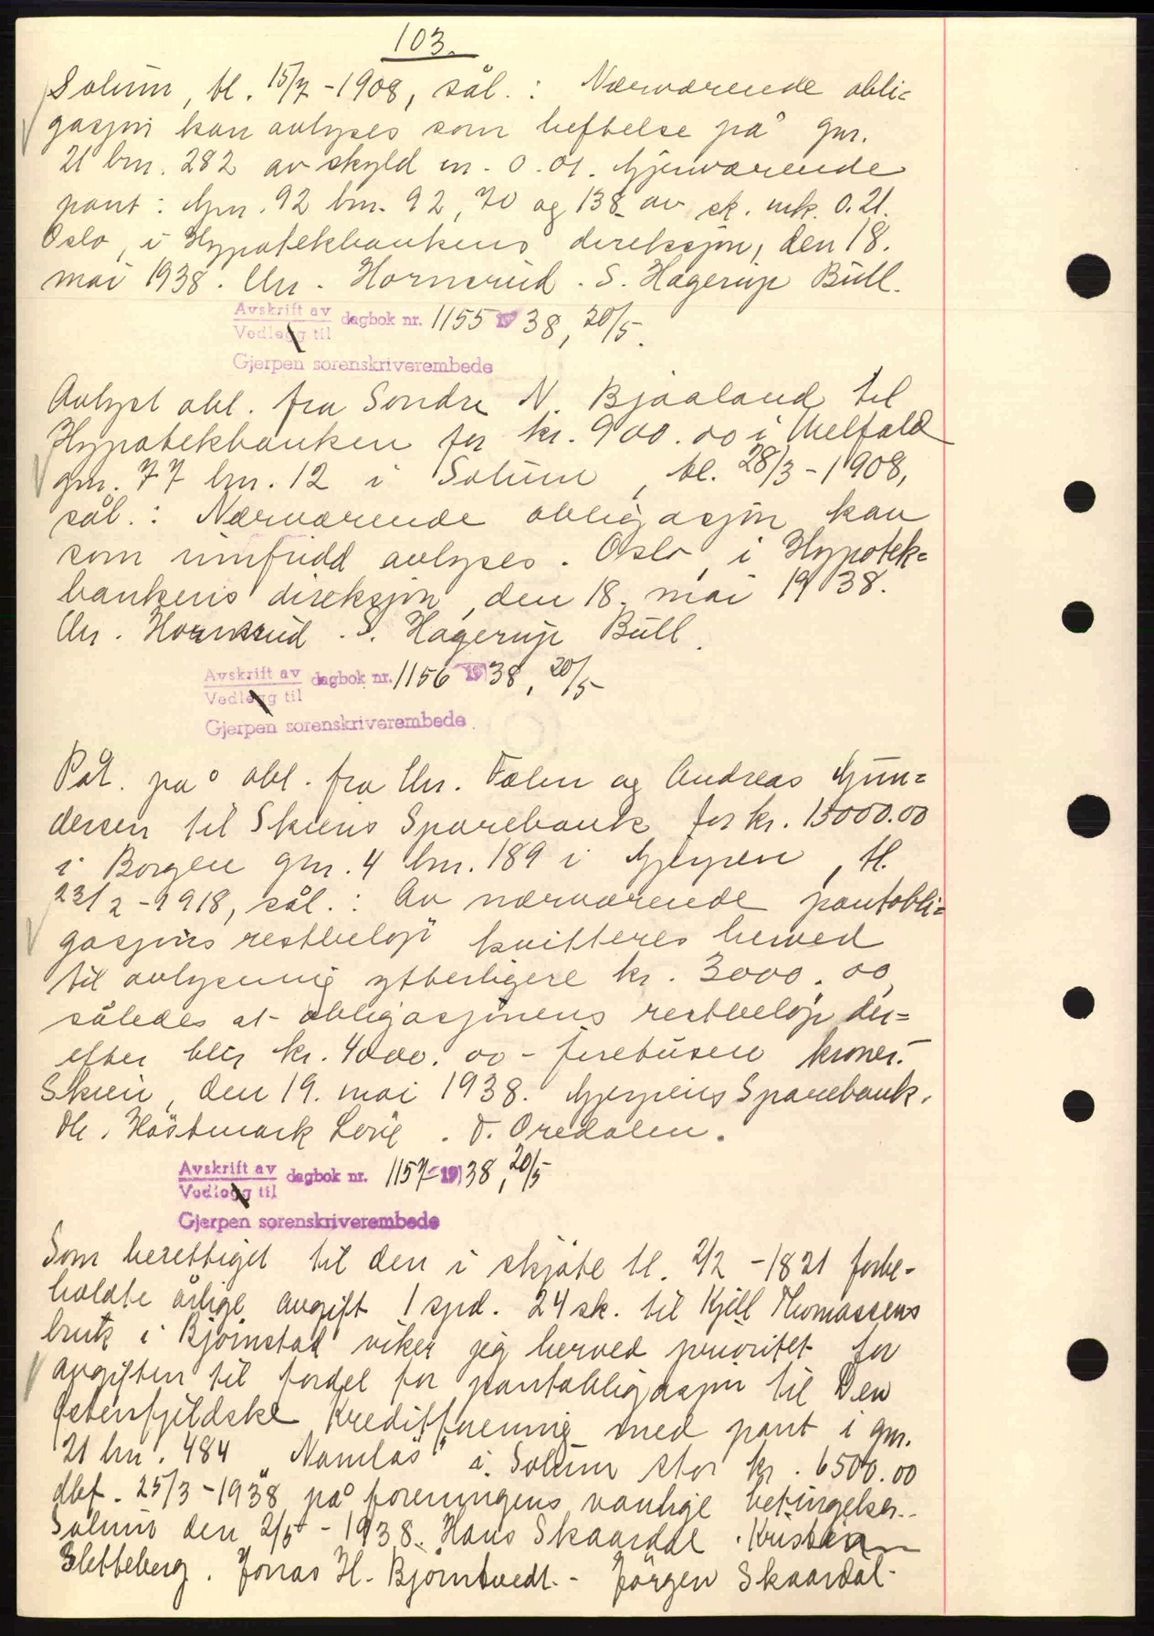 103.
Solum, tl. 15/7-1908, sål.: Nærværende obli=
gasjon kan avlyses som heftelse på gnr.
21 bnr. 282 av skyld m. 0.01. Gjenværende
pant: Gnr. 92 bnr. 92, 70 og 138 av sk. mk. 0.21.
Oslo, i Hypotekbankens direksjon, den 18.
mai 1938. Chr. Hornsrud. S. Hagerup Bull.
Avskrift av
Vedlegg til
dagbok nr. 1155 1938, 20/5.
Gjerpen sorenskriverembede
Avlyst obl. fra Sondre N. Bjaaland til
Hypotekbanken for kr. 900.00 i Melfald
gnr. 77 bnr. 12 i Solum, tl. 28/3-1908,
sål.: Nærværende obligasjon kan
som innfridd avlyses. Oslo, i Hypotek=
bankens direksjon, den 18. mai 1938.
Chr. Hornsrud. S. Hagerup Bull.
Avskrift av
Vedlegg til
dagbok nr. 1156 1938, 20/5
Gjerpen sorenskriverembede
Påt. på obl. fra Chr. Falen og Andreas Gun=
dersen til Skiens Sparebank for kr. 15000.00
i Borgen gnr. 4 bnr. 189 i Gjerpen, tl.
23/2-1918, sål.: Av nærværende pantobli=
gasjons restbeløp kvitteres herved
til avlysning ytterligere kr. 3000.00,
således at obligasjonens restbeløp der=
efter blir kr. 4000.00 - firetusen kroner.-
Skien, den 19. mai 1938. Gjerpens Sparebank.
Høstmark Løvé. T. Oredalen.
Avskrift av
Vedlegg til
dagbok nr. 1157-1938, 20/5
Gjerpen sorenskriverembede
Som berettiget til den i skjøte tl. 2/2-1821 forbe-
holdte årlige avgift 1 spd. 24 sk. til Kjell Thomassens
bruk i Bjørnstad viker jeg herved prioritet for
avgiften til fordel for pantobligasjon til Den
Østenfjeldske Kreditforening med pant i gnr.
21 bnr. 484 "Namløs" i Solum stor kr. 6500.00
dat. 25/3-1938 på foreningens vanlige betingelser.
Solum den 2/5-1938. Hans Skaardal. Kristian
Sletteberg. Jonas H. Bjørntvedt.- Jørgen Skaardal-